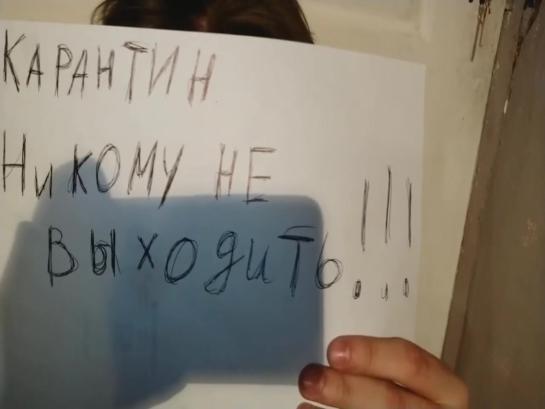 КАРАНТИН
НиКОМУ НЕ
ВЫХОдиТЬ!!!